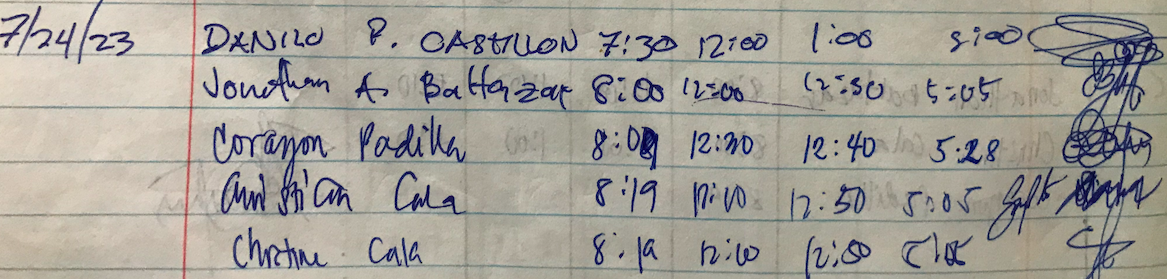 7/24/23 DANILO P. CASTILLON 7:30 12:00 1:00 5:00
Jonathan A. Baltazar 8:00 12:00 12:30 5:05
Corazon Padilla 8:09 12:30 12:40 5:28
Christian Cala 8:19 12:10 12:50 5:05
Christine Cala 8:19 12:10